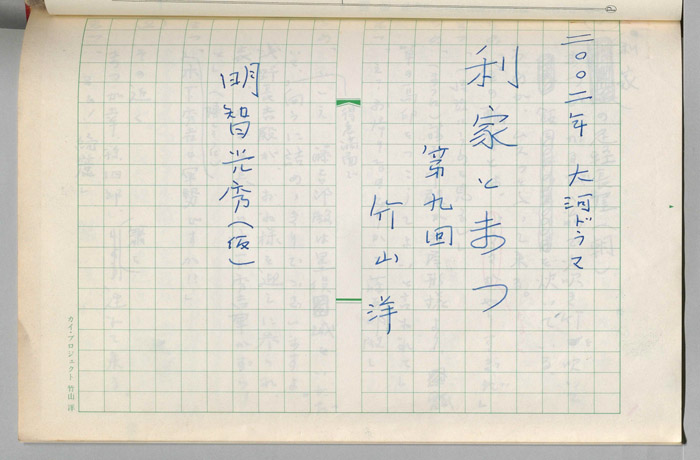 二〇〇二年 大河ドラマ
利家とまつ
第九回
竹山洋
明智光秀(仮)
ガイ・プロジェクト 竹山 洋